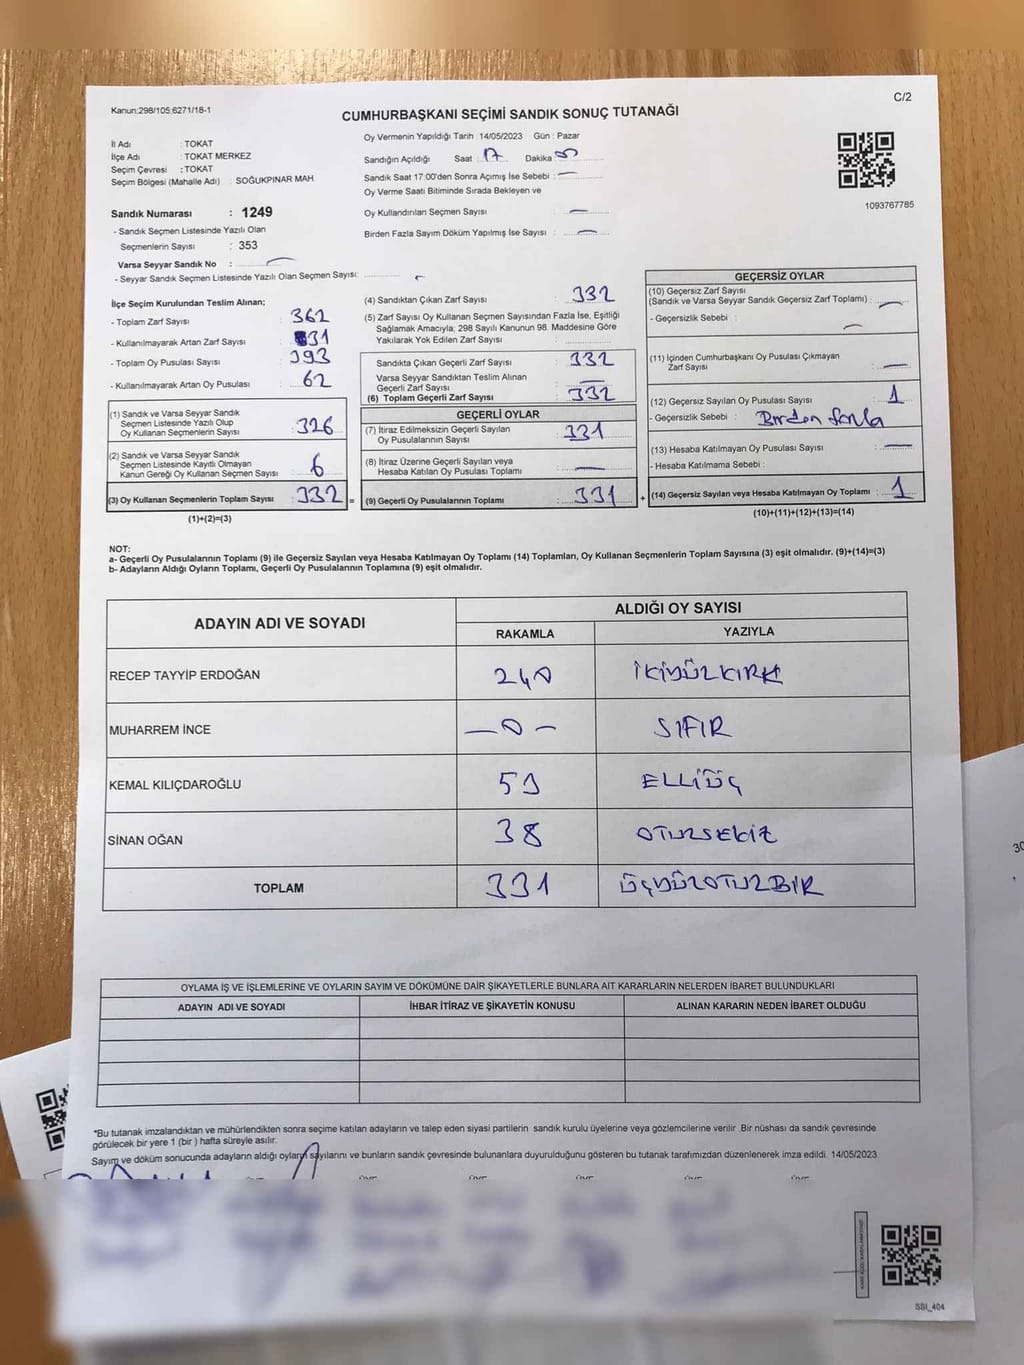 C/2
Kanun:298/105;6271/18-1
CUMHURBAŞKANI SEÇİMİ SANDIK SONUÇ TUTANAĞI
Oy Vermenin Yapıldığı Tarih : 14/05/2023 Gün : Pazar
İl Adı : TOKAT
İlçe Adı : TOKAT MERKEZ
Seçim Çevresi : TOKAT
Seçim Bölgesi (Mahalle Adı) : SOĞUKPINAR MAH.
Sandık Numarası : 1249
- Sandık Seçmen Listesinde Yazılı Olan
Seçmenlerin Sayısı : 353
Varsa Seyyar Sandık No : —
- Seyyar Sandık Seçmen Listesinde Yazılı Olan Seçmen Sayısı: —
Sandığın Açıldığı Saat : 17 Dakika :
Sandık Saat 17:00'den Sonra Açımış İse Sebebi : —
Oy Verme Saati Bitiminde Sırada Bekleyen ve
Oy Kullandırılan Seçmen Sayısı : —
Birden Fazla Sayım Döküm Yapılmış İse Sayısı : —
1093767785
İlçe Seçim Kurulundan Teslim Alınan;
- Toplam Zarf Sayısı : 362
- Kullanılmayarak Artan Zarf Sayısı : 31
- Toplam Oy Pusulası Sayısı : 393
- Kullanılmayarak Artan Oy Pusulası : 62
(1) Sandık ve Varsa Seyyar Sandık
Seçmen Listesinde Yazılı Olup
Oy Kullanan Seçmenlerin Sayısı : 326
(2) Sandık ve Varsa Seyyar Sandık
Seçmen Listesinde Kayıtlı Olmayan
Kanun Gereği Oy Kullanan Seçmen Sayısı : 6
(3) Oy Kullanan Seçmenlerin Toplam Sayısı : 332 =
(1)+(2)=(3)
(4) Sandıktan Çıkan Zarf Sayısı : 332
(5) Zarf Sayısı Oy Kullanan Seçmen Sayısından Fazla İse, Eşitliği
Sağlamak Amacıyla; 298 Sayılı Kanunun 98. Maddesine Göre
Yakılarak Yok Edilen Zarf Sayısı :
Sandıkta Çıkan Geçerli Zarf Sayısı : 332
Varsa Seyyar Sandıktan Teslim Alınan
Geçerli Zarf Sayısı : —
(6) Toplam Geçerli Zarf Sayısı : 332
GEÇERLİ OYLAR
(7) İtiraz Edilmeksizin Geçerli Sayılan
Oy Pusulalarının Sayısı : 331
(8) İtiraz Üzerine Geçerli Sayılan veya
Hesaba Katılan Oy Pusulası Toplamı : —
(9) Geçerli Oy Pusulalarının Toplamı : 331 +
GEÇERSİZ OYLAR
(10) Geçersiz Zarf Sayısı
(Sandık ve Varsa Seyyar Sandık Geçersiz Zarf Toplamı) : —
- Geçersizlik Sebebi : —
(11) İçinden Cumhurbaşkanı Oy Pusulası Çıkmayan
Zarf Sayısı : —
(12) Geçersiz Sayılan Oy Pusulası Sayısı : 1
- Geçersizlik Sebebi : Birden fazla
(13) Hesaba Katılmayan Oy Pusulası Sayısı : —
- Hesaba Katılmama Sebebi :
(14) Geçersiz Sayılan veya Hesaba Katılmayan Oy Toplamı : 1
(10)+(11)+(12)+(13)=(14)
NOT:
a- Geçerli Oy Pusulalarının Toplamı (9) ile Geçersiz Sayılan veya Hesaba Katılmayan Oy Toplamı (14) Toplamları, Oy Kullanan Seçmenlerin Toplam Sayısına (3) eşit olmalıdır. (9)+(14)=(3)
b- Adayların Aldığı Oyların Toplamı, Geçerli Oy Pusulalarının Toplamına (9) eşit olmalıdır.
ADAYIN ADI VE SOYADI
ALDIĞI OY SAYISI
RAKAMLA YAZIYLA
RECEP TAYYİP ERDOĞAN 240 İKİYÜZKIRK
MUHARREM İNCE —0— SIFIR
KEMAL KILIÇDAROĞLU 53 ELLİÜÇ
SİNAN OĞAN 38 OTUZSEKİZ
TOPLAM 331 ÜÇYÜZOTUZBİR
OYLAMA İŞ VE İŞLEMLERİNE VE OYLARIN SAYIM VE DÖKÜMÜNE DAİR ŞİKAYETLERLE BUNLARA AİT KARARLARIN NELERDEN İBARET BULUNDUKLARI
ADAYIN ADI VE SOYADI İHBAR İTİRAZ VE ŞİKAYETİN KONUSU ALINAN KARARIN NEDEN İBARET OLDUĞU
*Bu tutanak imzalandıktan ve mühürlendikten sonra seçime katılan adayların ve talep eden siyasi partilerin sandık kurulu üyelerine veya gözlemcilerine verilir. Bir nüshası da sandık çevresinde
görülecek bir yere 1 (bir ) hafta süreyle asılır.
Sayım ve döküm sonucunda adayların aldığı oyların sayılarını ve bunların sandık çevresinde bulunanlara duyurulduğunu gösteren bu tutanak tarafımızdan düzenlenerek imza edildi. 14/05/2023
SSİ_404
30